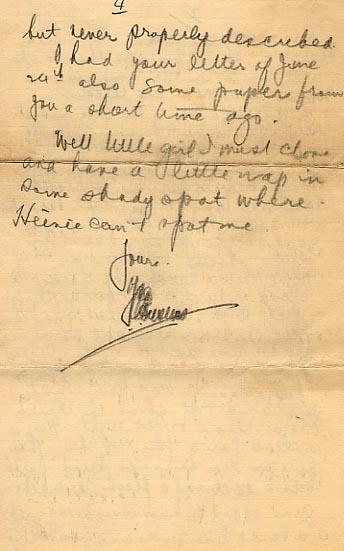 4
but never properly described
I had your letter of June
24th also some papers from
you a short time ago.
Well little girl I must close
and have a little nap in
some shady spot where
Heinie can't spot me
Yours.